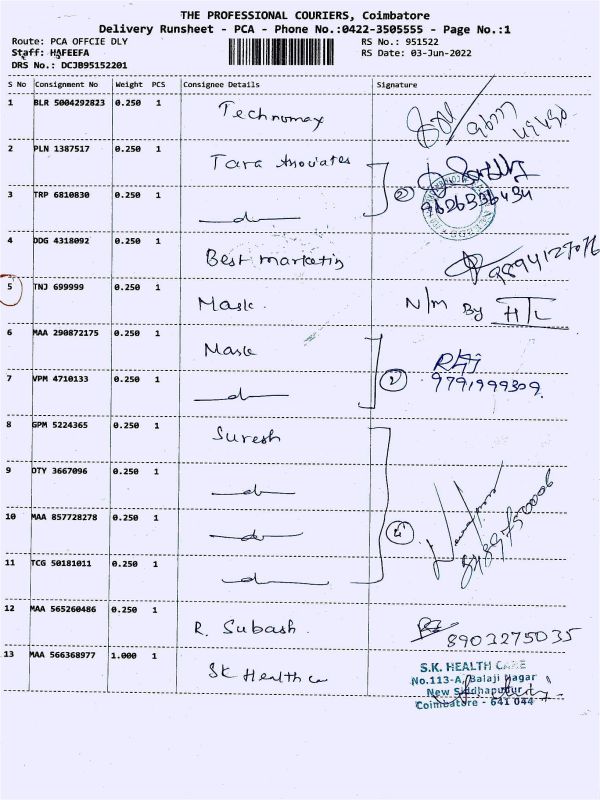 THE PROFESSIONAL COURIERS, Coimbatore
Delivery Runsheet - PCA - Phone No.:0422-3505555 - Page No.:1
Route: PCA OFFCIE DLY RS No.: 951522
Staff: HAFEEFA RS Date: 03-Jun-2022
DRS No.: DCJB95152201
S No Consignment No Weight PCS Consignee Details Signature
1 BLR 5004292823 0.250 1 Technomax
2 PLN 1387517 0.250 1 Tara Associates
3 TRP 6810830 0.250 1 do 2 9626336434
4 DDG 4318092 0.250 1 Best marketing 9894127076
5 TNJ 699999 0.250 1 Mask N/M By HTL
6 MAA 290872175 0.250 1 Mask Raj
7 VPM 4710133 0.250 1 do 2 9791999309
8 GPM 5224365 0.250 1 Suresh
9 OTY 3667096 0.250 1 do
10 MAA 857728278 0.250 1 do 4
11 TCG 50181011 0.250 1 do
12 MAA 565260486 0.250 1 R. Subash 8903275035
13 MAA 566368977 1.000 1 SK Health ca
S.K. HEALTH CARE
No.113-A, Balaji Nagar
New Siddhapudur
Coimbatore - 641 044